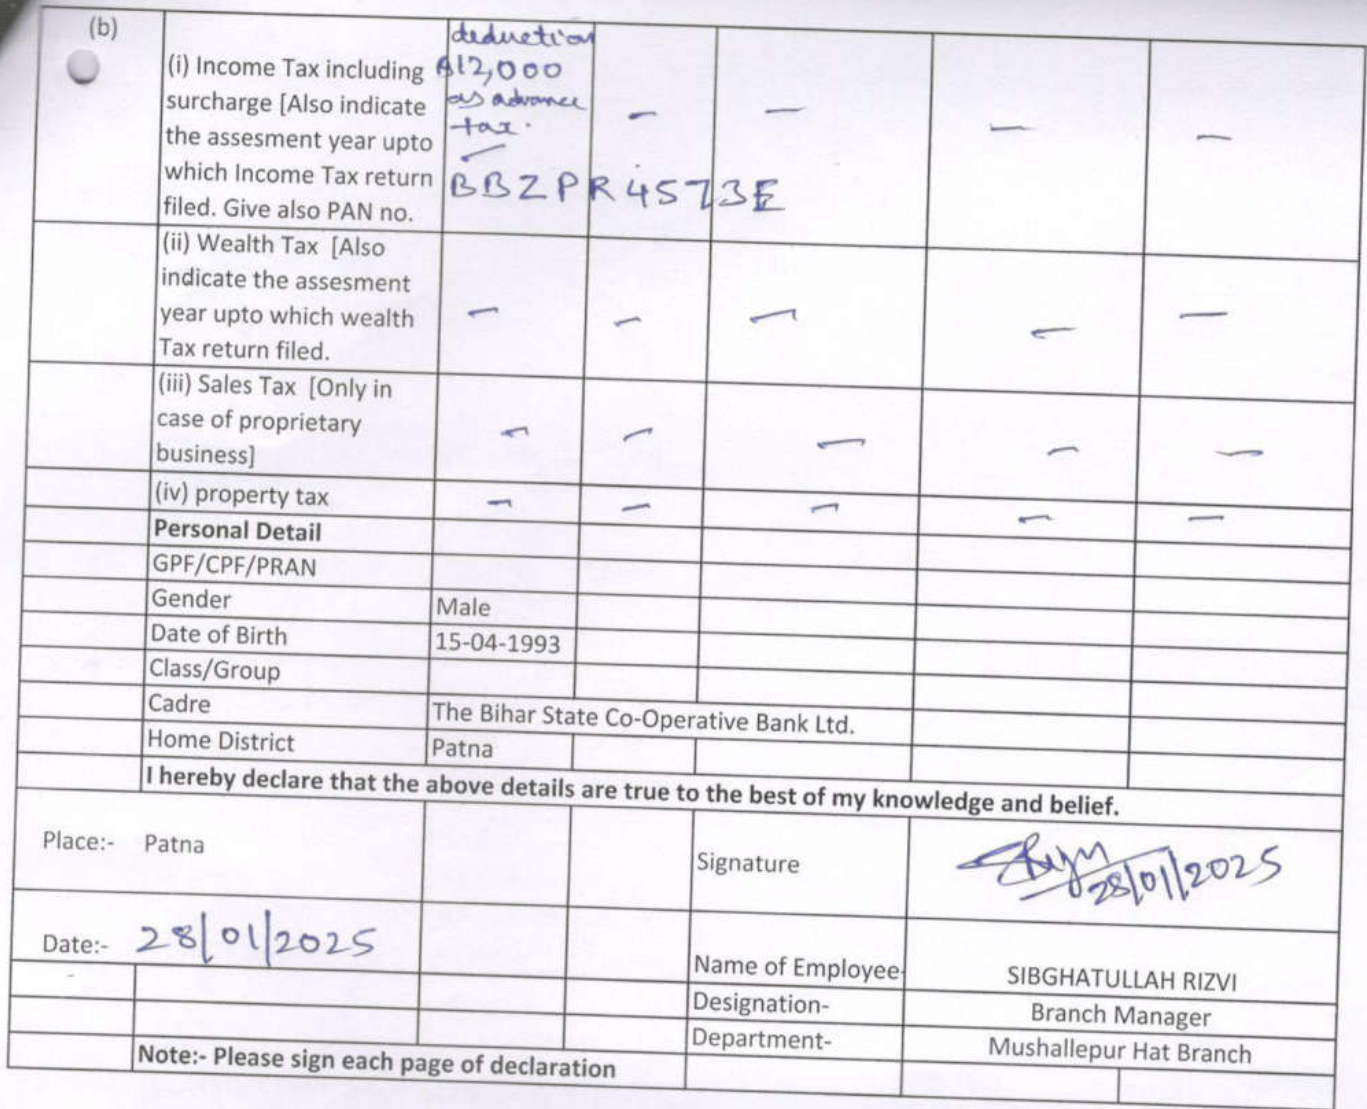 (b)
deduction
(i) Income Tax including ₹12,000
surcharge [Also indicate as advance
the assesment year upto tax.
which Income Tax return BBZPR4573E
filed. Give also PAN no.
– – – –
(ii) Wealth Tax [Also
indicate the assesment
year upto which wealth – – – – –
Tax return filed.
(iii) Sales Tax [Only in
case of proprietary – – – – –
business]
(iv) property tax – – – – –
Personal Detail
GPF/CPF/PRAN
Gender Male
Date of Birth 15-04-1993
Class/Group
Cadre The Bihar State Co-Operative Bank Ltd.
Home District Patna
I hereby declare that the above details are true to the best of my knowledge and belief.
Place:- Patna Signature 28/01/2025
Date:- 28/01/2025
Name of Employee- SIBGHATULLAH RIZVI
Designation- Branch Manager
Department- Mushallepur Hat Branch
Note:- Please sign each page of declaration